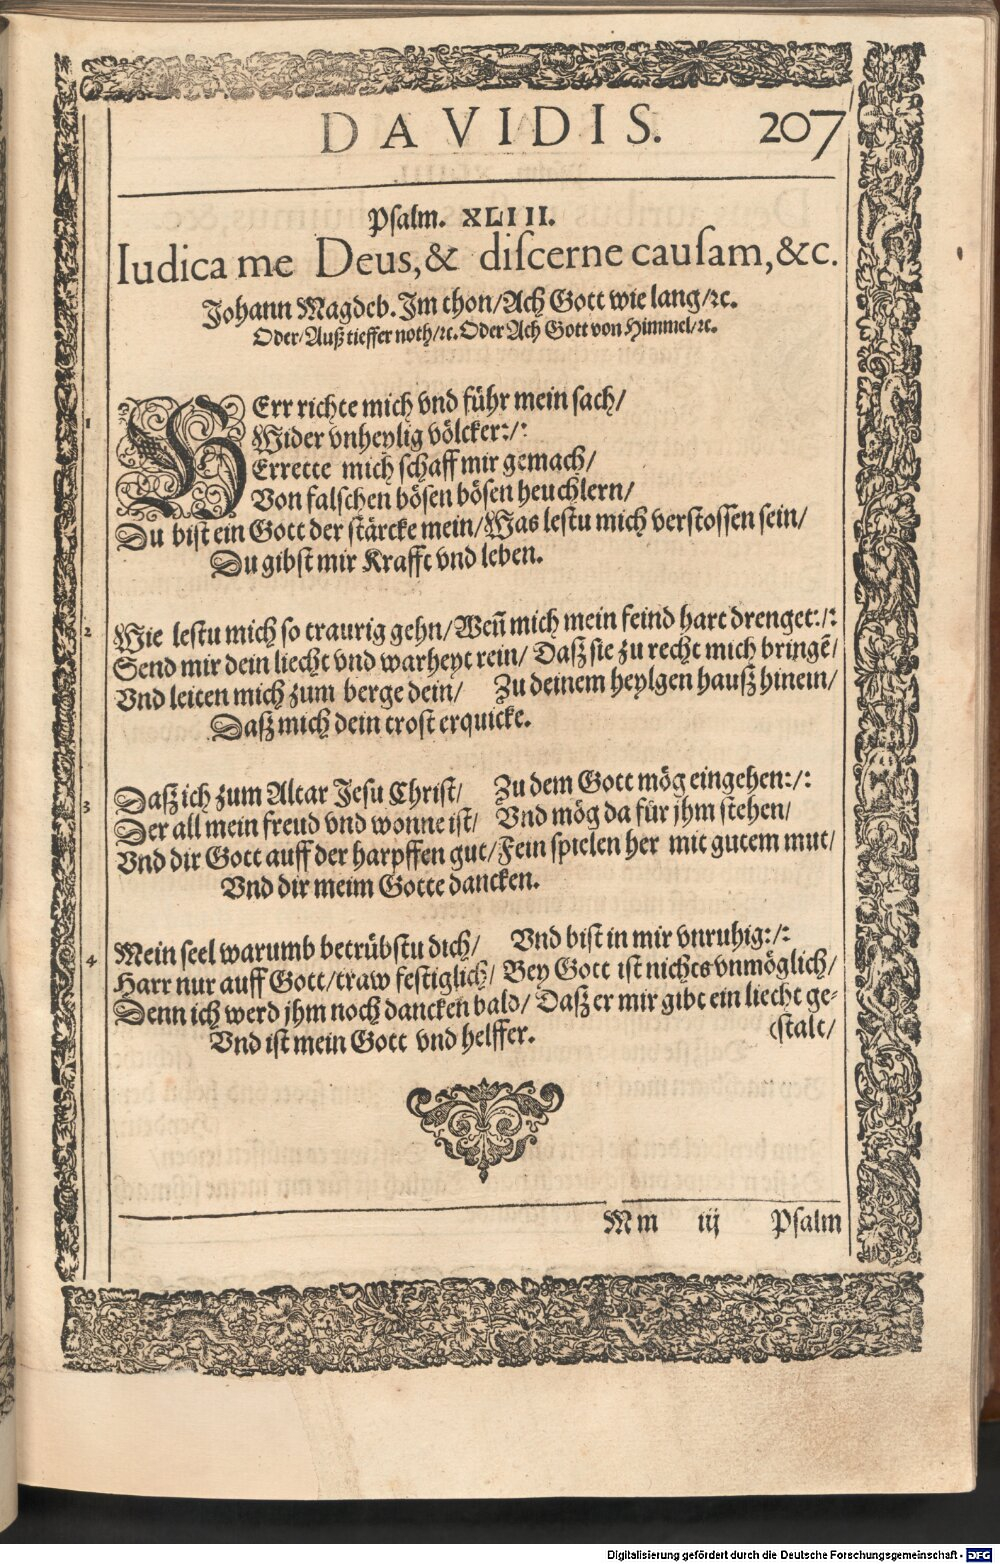 DAVIDIS. 207
Psalm. XLIII.
Iudica me Deus, & diſcerne cauſam, &c.
Johann Magdeb. Im thon/Ach Gott wie lang/ꝛc.
Oder/Auß tieffer noth/ꝛc. Oder Ach Gott von Himmel/ꝛc.
1 HErr richte mich vnd führ mein ſach/
Wider vnheylig völcker:/:
Errette mich ſchaff mir gemach/
Von falſchen böſen böſen heuchlern/
Du biſt ein Gott der ſtärcke mein/Was leſtu mich verſtoſſen ſein/
Du gibſt mir Krafft vnd leben.
2 Wie leſtu mich ſo traurig gehn/Weñ mich mein feind hart drenget:/:
Send mir dein liecht vnd warheyt rein/ Daſz ſie zu recht mich bringẽ/
Vnd leiten mich zum berge dein/ Zu deinem heylgen hauſz hinein/
Daſz mich dein troſt erquicke.
3 Daſz ich zum Altar Jeſu Chriſt/ Zu dem Gott mög eingehen:/:
Der all mein freud vnd wonne iſt/ Vnd mög da für jhm ſtehen/
Vnd dir Gott auff der harpffen gut/Fein ſpielen her mit gutem mut/
Vnd dir meim Gotte dancken.
4 Mein ſeel warumb betrübſtu dich/ Vnd biſt in mir vnruhig:/:
Harr nur auff Gott/traw feſtiglich/ Bey Gott iſt nichts vnmöglich/
Denn ich werd jhm noch dancken bald/ Daſz er mir gibt ein liecht ge-
Vnd iſt mein Gott vnd helffer. (ſtalt/
Mm iij Pſalm
Digitalisierung gefördert durch die Deutsche Forschungsgemeinschaft - DFG